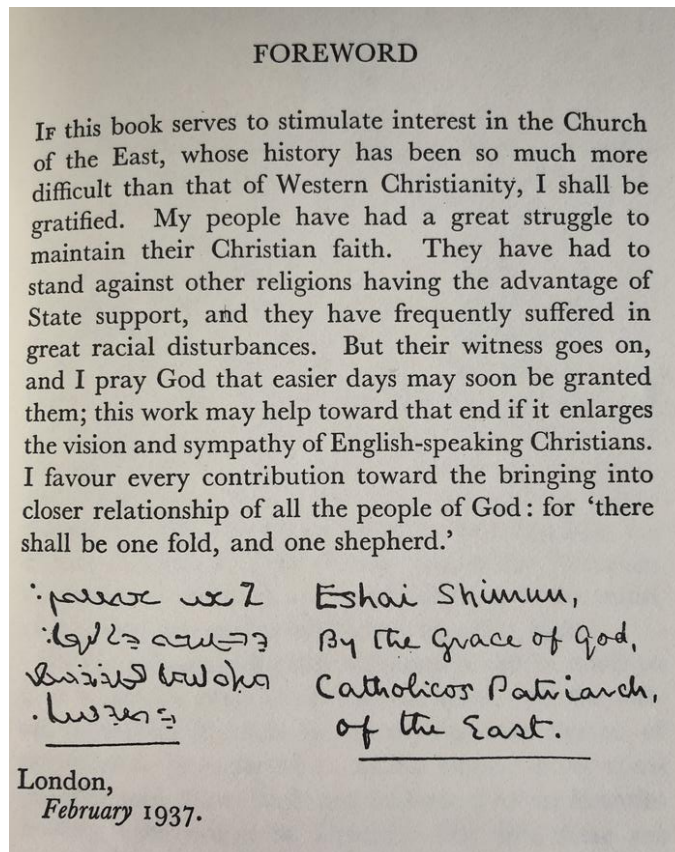 FOREWORD
IF this book serves to stimulate interest in the Church
of the East, whose history has been so much more
difficult than that of Western Christianity, I shall be
gratified. My people have had a great struggle to
maintain their Christian faith. They have had to
stand against other religions having the advantage of
State support, and they have frequently suffered in
great racial disturbances. But their witness goes on,
and I pray God that easier days may soon be granted
them; this work may help toward that end if it enlarges
the vision and sympathy of English-speaking Christians.
I favour every contribution toward the bringing into
closer relationship of all the people of God: for ‘there
shall be one fold, and one shepherd.’
Eshai Shimun,
By the Grace of God,
Catholicos Patriarch,
of the East.
London,
February 1937.